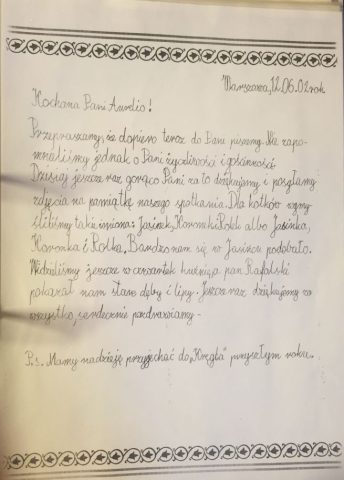 Warszawa, 12.06.02 rok
Kochana Pani Aurelio!
Przepraszamy, że dopiero teraz do Pani piszemy. Nie zapo-
mnieliśmy jednak o Pani życzliwości i gościnności.
Dzisiaj jeszcze raz gorąco Pani za to dziękujemy i posyłamy
zdjęcia na pamiątkę naszego spotkania. Dla kotków wymy-
śliliśmy takie imiona: Jasinek, i Rolek albo Jasinka,
i Rolka. Bardzo nam się w Jasińcu podobało.
Widzieliśmy jeszcze w czwartek pan Rafalski
pokazał nam stare dęby i lipy. Jeszcze raz dziękujemy za
wszystko, serdecznie pozdrawiamy -
P.s. Mamy nadzieję przyjechać do przyszłym roku.